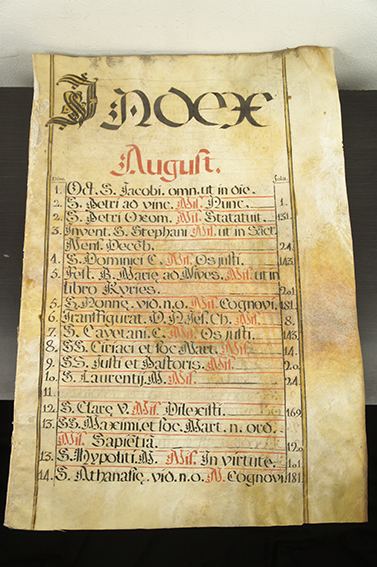 Index
August.
Dies. folia
1. Oct. S. Jacobi. omn. ut in die.
2. S. Petri ad vinc. Mis. Nunc. 1.
2. S. Petri Oxom. Mis. Statuit. 131.
3. Invent. S. Stephani Mis. ut in Sāct.
Mens. Decēb. 24
4. S. Dominici C. Mis. Os justi. 143
5. Fest. B. Marię ad Nives. Mis. ut in
libro Kyries. 201
5. S. Nonnę. vid. n. o. Mis. Cognovi. 181
6. Transfigurat. D. N. Jes. Ch. Mis. 8.
7. S. Cayetani. C. Mis. Os justi. 143
8. SS. Ciriaci et soc Mart. Mis. 14.
9. SS. Justi et Pastoris. Mis. 20.
10. S. Laurentij. M. Mis. 24
11
12. S. Clarę V. Mis. Dilexisti. 169
13. SS. Maximi. et soc. Mart. n. ord.
Mis. Sapiētia. 120
13. S. Hypoliti. M. Mis. In virtute. 101
14. S. Athanasię. vid. n. o. M. Cognovi. 181